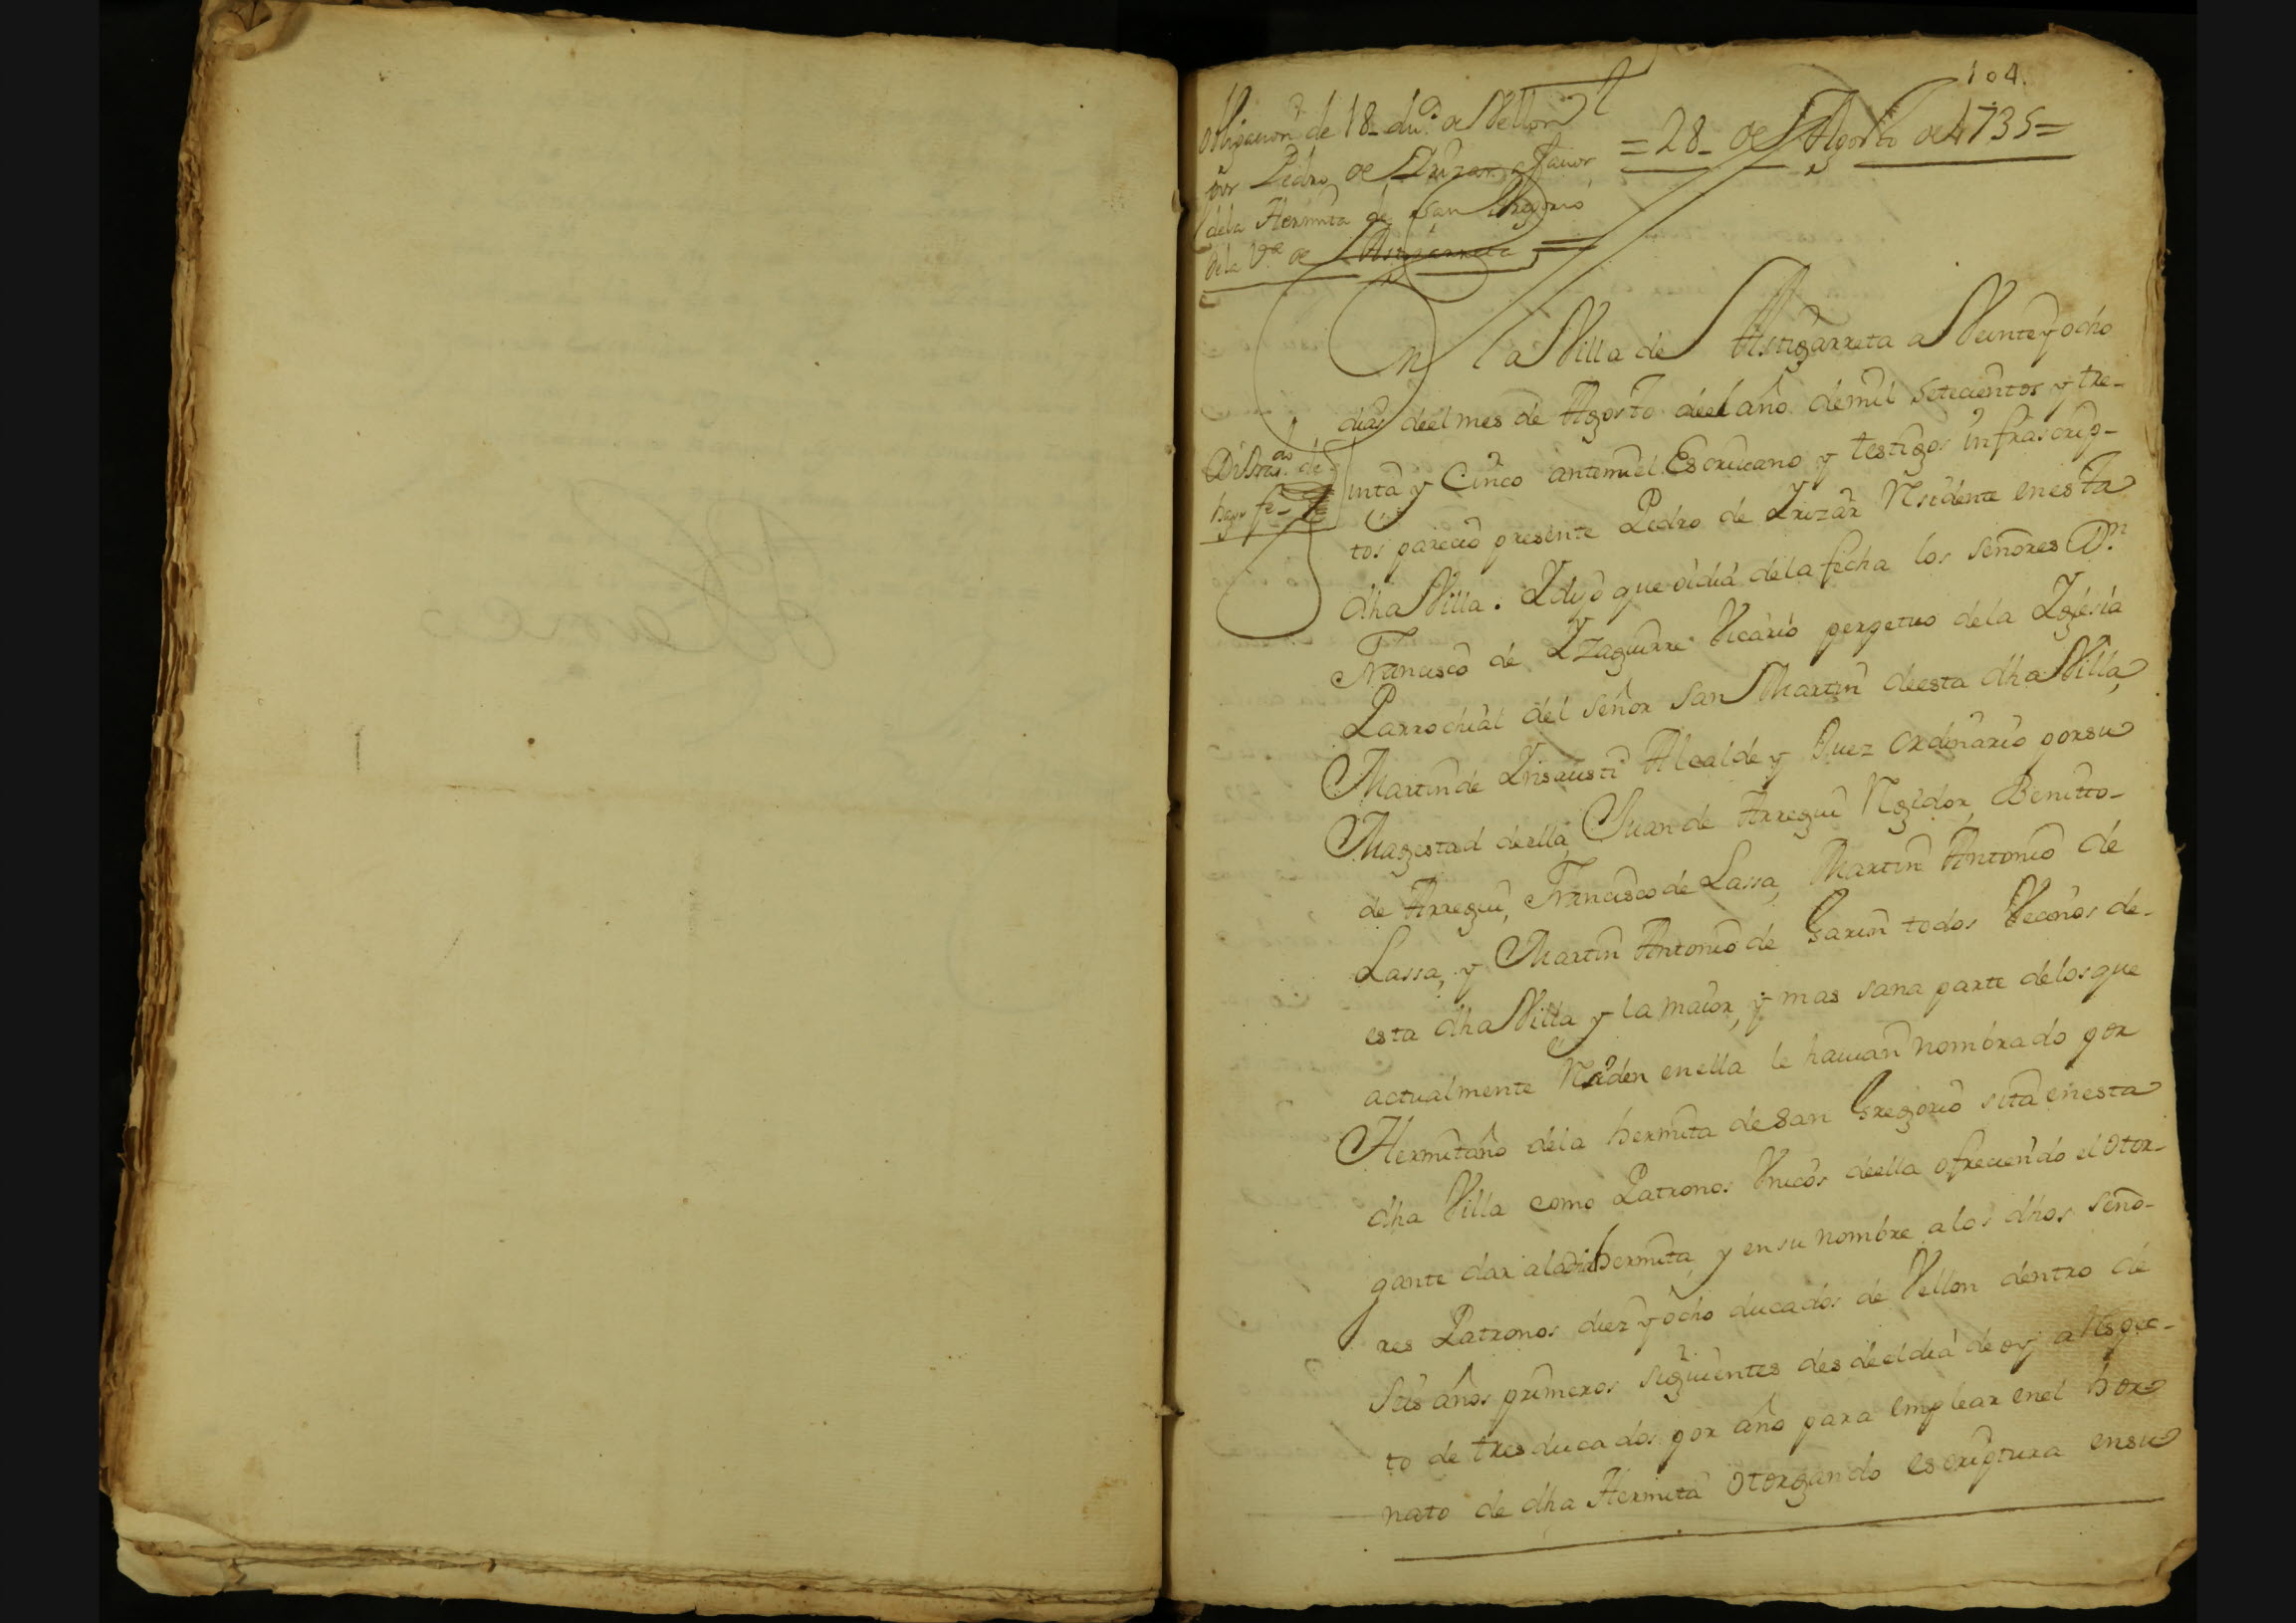 104.
Obligacion de 18 du.s de Vellon
por Pedro de Irizar a favor
de la Hermita de San Gregorio
de la V.a de Astigarreta =
=28 de Agosto de 1735=
En la Villa de Astigarreta a Veinte y ocho
dias deel mes de Agosto deel año de mil setecientos y tre-
inta y Cinco ante mi el Escriuano y testigos infrascrip-
tos parecio presente Pedro de Irizar Residente en esta
dha Villa. Y dijo que oi dia de la fecha los señores D.n
Francisco de Yzaguirre Vicario perpetuo de la Yglesia
Parrochial del señor San Martin de esta dha Villa,
Martin de Yrisausti Alcalde y Juez ordinario por su
Magestad de ella, Juan de Arregui Regidor, Benitto
de Arregui, Francisco de Lassa, Martin Antonio de
Lassa, y Martin Antonio de Garin todos Vecinos de
esta dha Villa y la maior, y mas sana parte de los que
actualmente Residen en ella le hauian nombrado por
Hermitaño de la hermita de San Gregorio sita en esta
dha Villa como Patronos Vnicos de ella ofreciendo el otor-
gante dar a la dha hermita, y en su nombre a los dhos seño-
res Patronos diez y ocho ducados de Vellon dentro de
seis años primeros siguientes desde el dia de oy a Respec-
to de tres ducados por año para emplear en el hor-
nato de dha Hermita otorgando escriptura en su